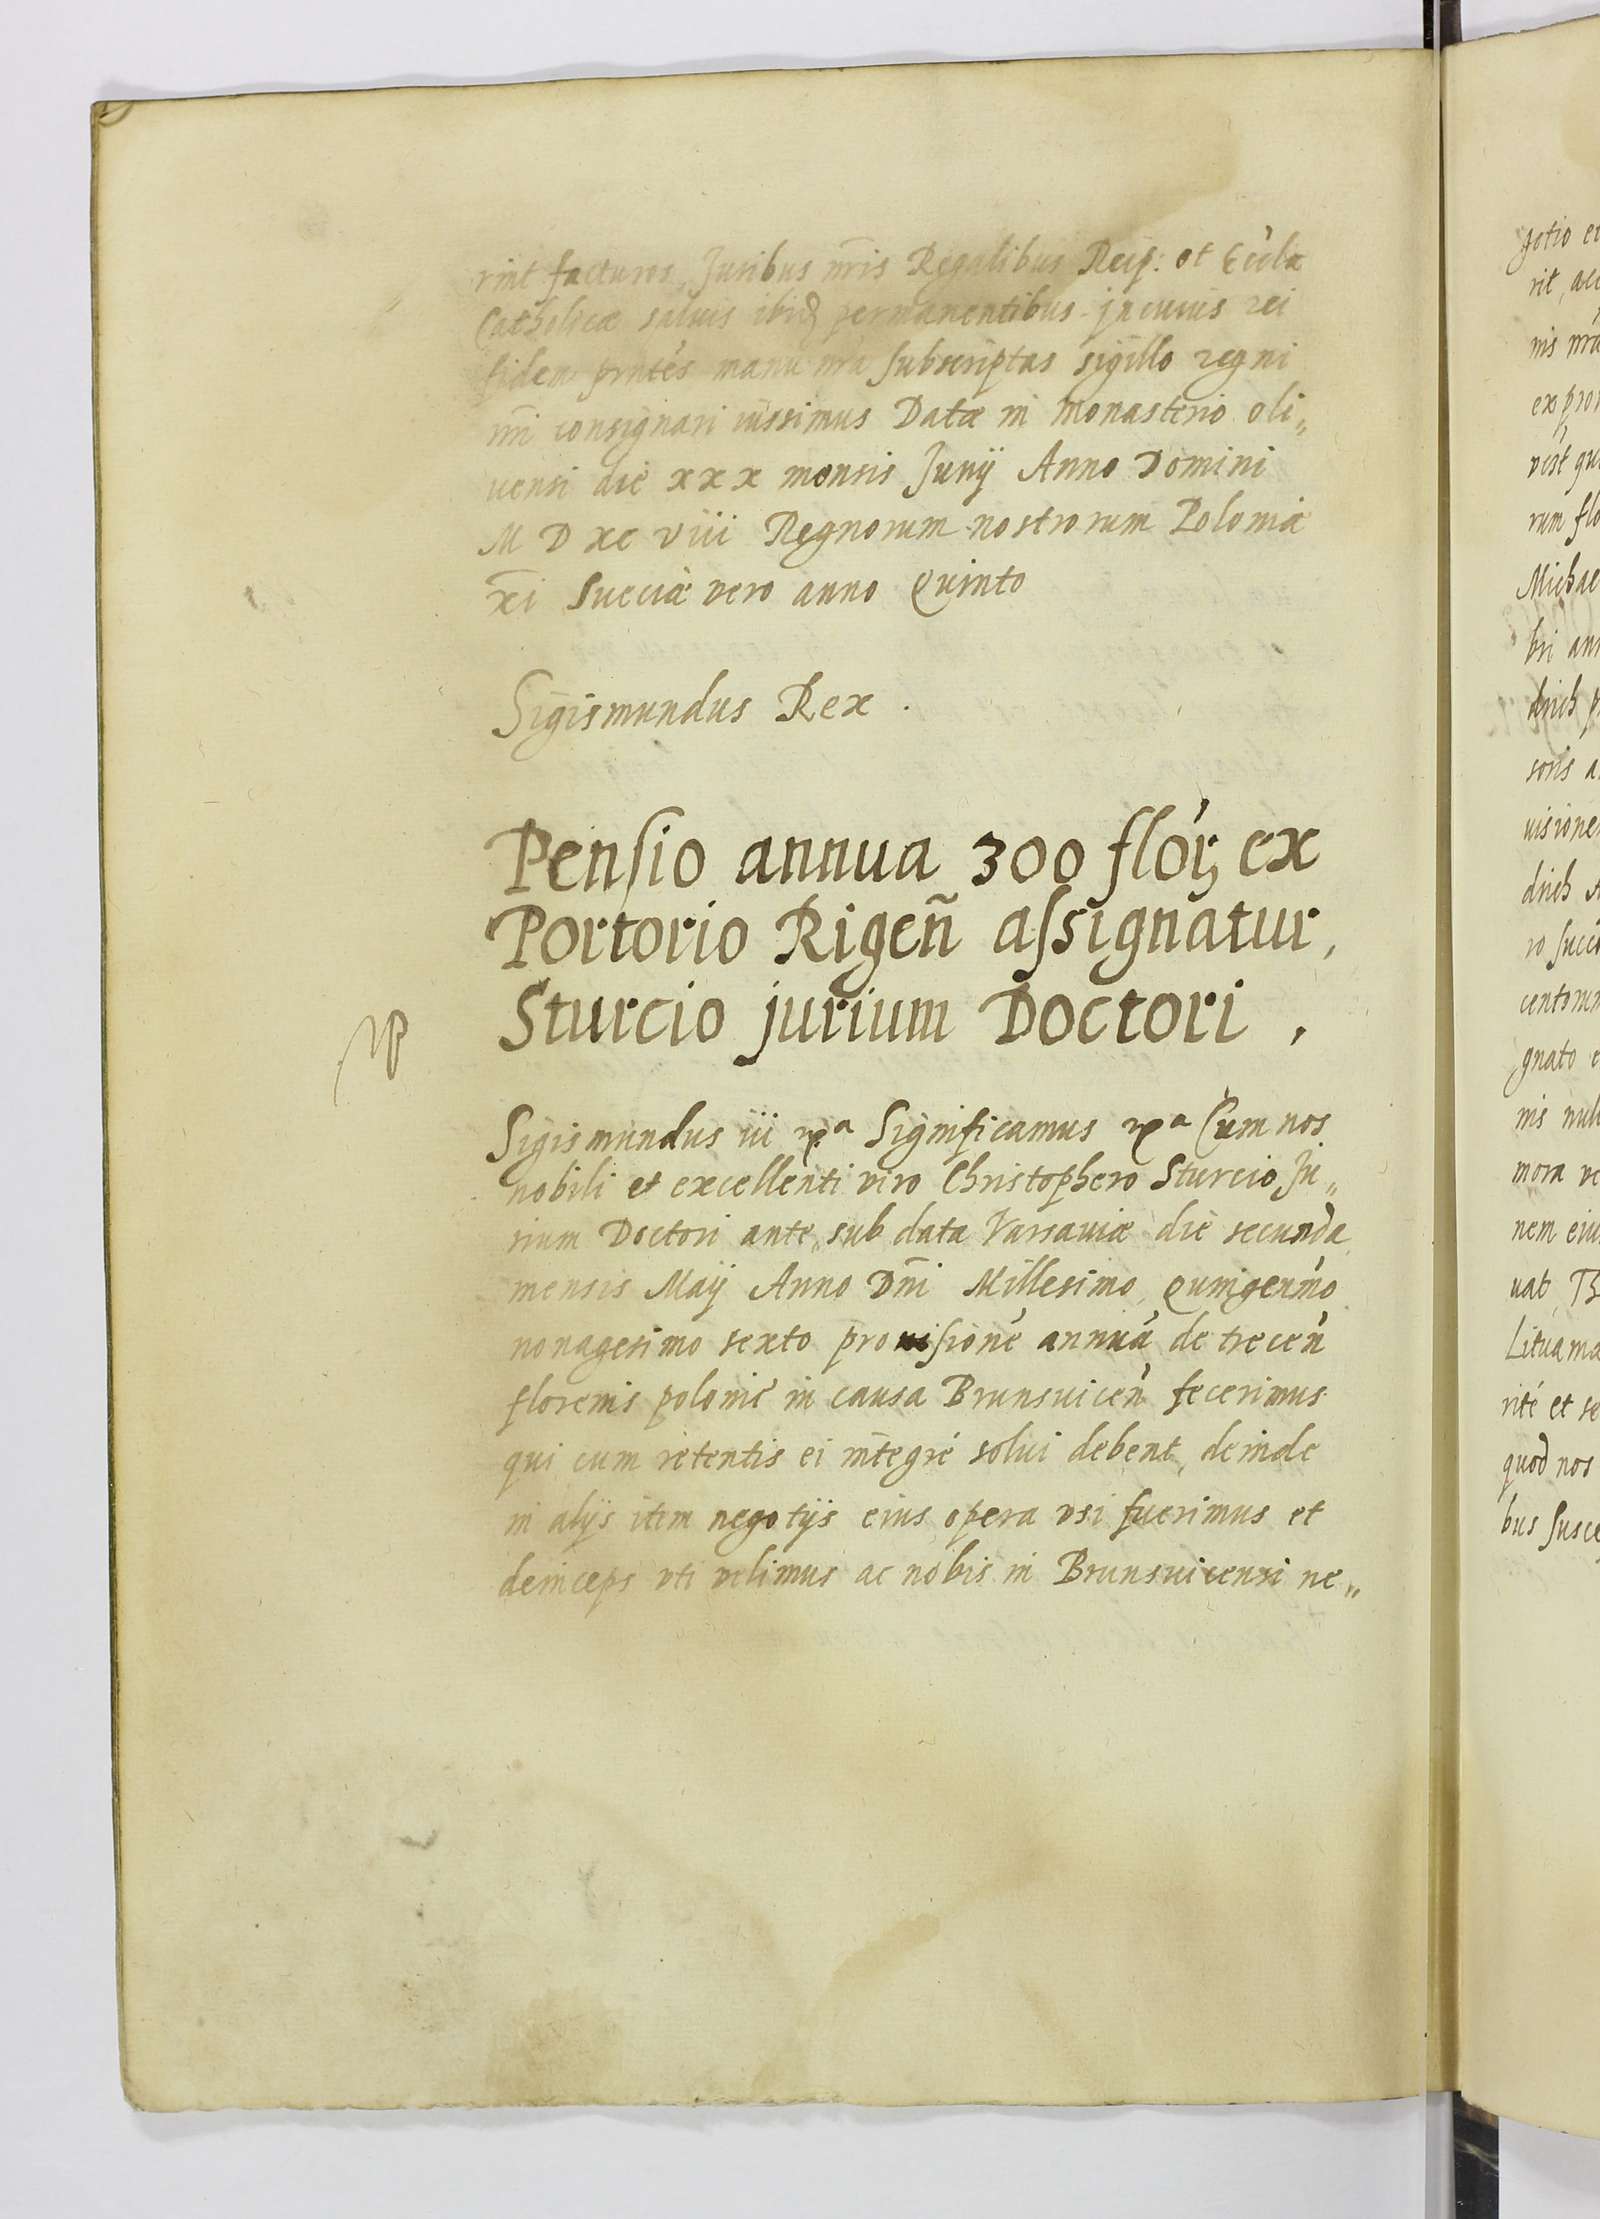 rint facturos, Juribus nr̃is Regalibus Reip: et Eccl̃æ
Catholicæ salvis ibid permanentibus. Jn cuius rei
fidem prñtes manu nr̃a subscriptas sigillo regni
nr̃i consignari iussimus Datæ in Monasterio oli„
uensi die xxx mensis Junij Anno Domini
M D xc viii Regnorum nostrorum Poloniæ
xi Sueciæ vero anno Quinto
Sigismundus Rex.
Pensio annua 300 flor; ex
Portorio Rigeñ assignatur,
Sturcio jurium Doctori.
NB
Sigismundus iii rp.ª Significamus rp.ª Cum nos
nobili et excellenti viro Christophero Sturcio Ju„
rium Doctori ante sub data Varsaviæ die secunda
mensis Maij Anno Dñi Millesimo Quingenño
nonagesimo sexto provisionẽ annuã de trecen̄
florenis polonic̃ in causa Brunsvicen̄ fecerimus
qui cum retentis ei integrè solui debent, deinde
in alijs item negotijs eius opera vsi fuerimus et
deinceps vti velimus ac nobis in Brunsuicensi ne„
gotio
rit,
nis nr̃a
rum
Michae
bri
soris
uisione
ro
gnato
nis
mora
nem
uat,
Lituania
ritè et
quod nos
bus susce